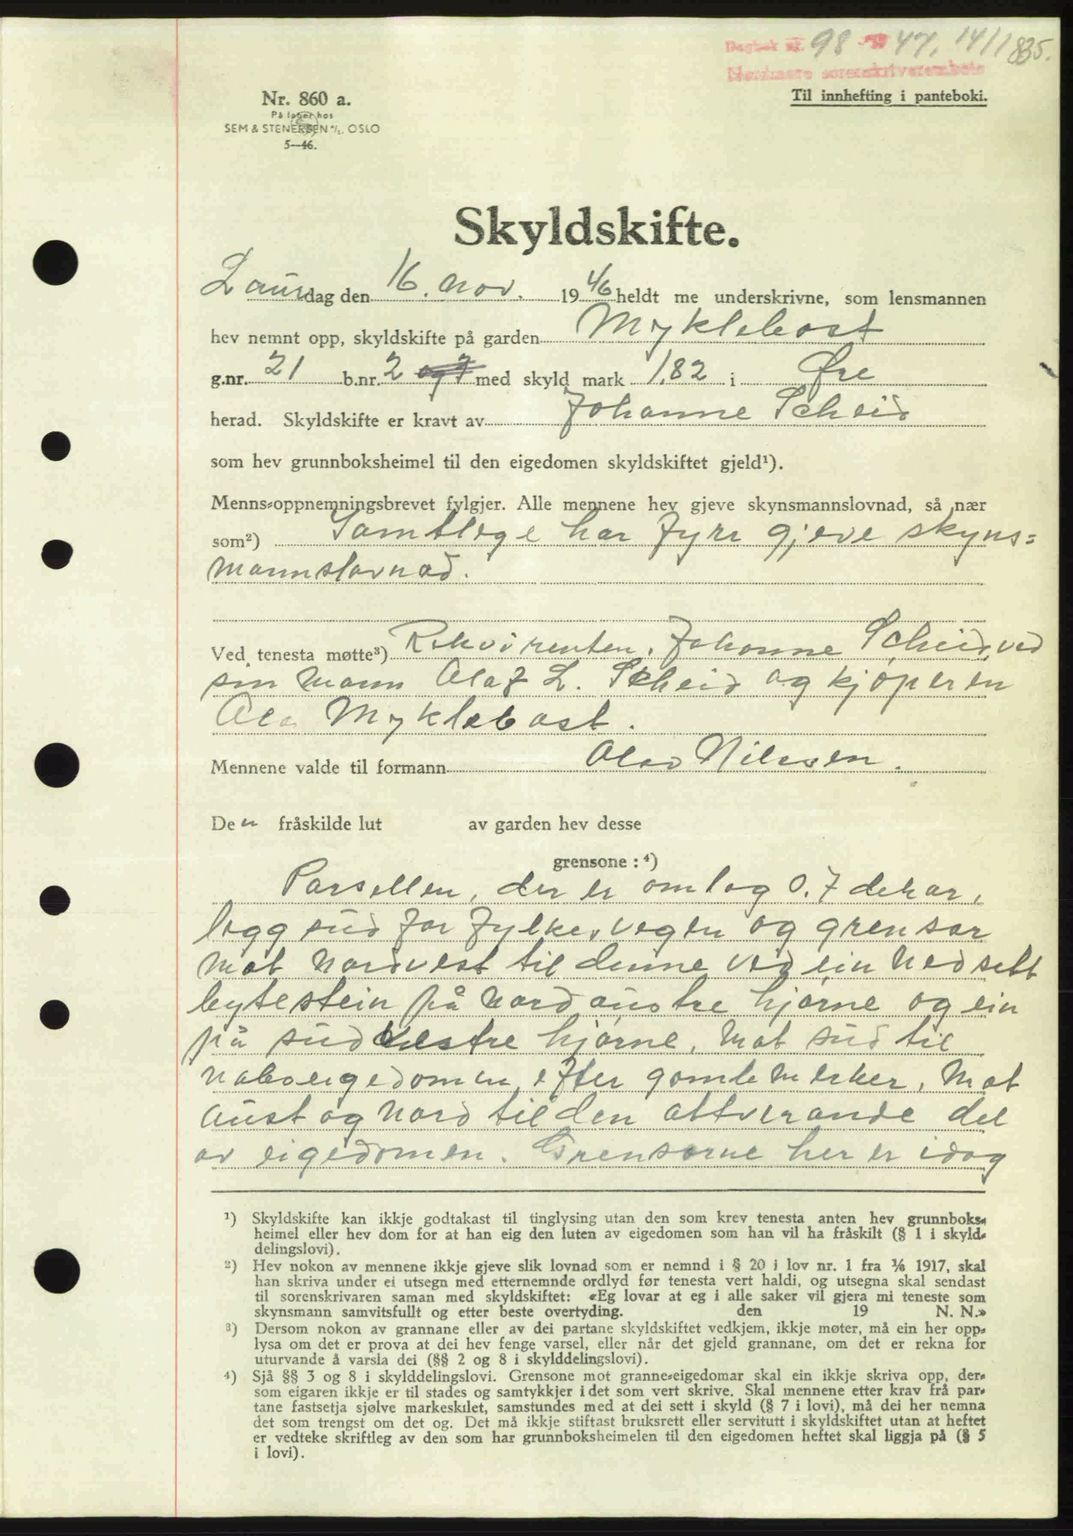 Dagbok nr. 98 19 47, 14/1 835.
Nordmøre sorenskriverembete
Nr. 860 a.
Til innhefting i panteboki.
På lager hos
SEM & STENERSEN A/S, OSLO
5—46.
Skyldskifte.
Laurdag den 16. nov. 1946 heldt me underskrivne, som lensmannen
hev nemnt opp, skyldskifte på garden Myklebost
g.nr. 21 b.nr. 2 og 7 med skyld mark 1,82 i Øre
herad. Skyldskifte er kravt av Johanne Scheid
som hev grunnboksheimel til den eigedomen skyldskiftet gjeld¹).
Menns-oppnemningsbrevet fylgjer. Alle mennene hev gjeve skynsmannslovnad, så nær
som²) Samtlege har fyrr gjeve skyns=
mannslovnad.
Ved tenesta møtte³) Rekvirenten, Johanne Scheid, ved
sin mann Olaf L. Scheid og kjøperen
Myklebost.
Mennene valde til formann Olav Nilssen.
Den fråskilde lut av garden hev desse
grensone : ⁴)
Parsellen, der er omlag 0.7 dekar,
ligg sud for fylkesvegen og grensar
mot nordvest til denne ved ein nedsett
bytestein på nordaustre hjørne og ein
på sudvestre hjørne. Mot sud til
naboeigedomen, efter gamle merker. Mot
aust og nord til den attverande del
av eigedomen. Grensorne her er idag
¹) Skyldskifte kan ikkje godtakast til tinglysing utan den som krev tenesta anten hev grunnboks-
heimel eller hev dom for at han eig den luten av eigedomen som han vil ha fråskilt (§ 1 i skyld-
delingslovi).
²) Hev nokon av mennene ikkje gjeve slik lovnad som er nemnd i § 20 i lov nr. 1 fra ⅙ 1917, skal
han skriva under ei utsegn med etternemnde ordlyd før tenesta vert haldi, og utsegna skal sendast
til sorenskrivaren saman med skyldskiftet: «Eg lovar at eg i alle saker vil gjera mi teneste som
skynsmann samvitsfullt og etter beste overtyding. den 19 N. N.»
³) Dersom nokon av grannane eller av dei partane skyldskiftet vedkjem, ikkje møter, må ein her opp-
lysa om det er prova at dei hev fenge varsel, eller når det gjeld grannane, om det er rekna for
uturvande å varsla dei (§§ 2 og 8 i skylddelingslovi).
⁴) Sjå §§ 3 og 8 i skylddelingslovi. Grensone mot granne-eigedomar skal ein ikkje skriva opp, der-
som eigaren ikkje er til stades og samtykkjer i det som vert skrive. Skal mennene etter krav frå par-
tane fastsetja sjølve markeskilet, samstundes med at dei sett i skyld (§ 7 i lovi), må dei her nemna
det som trengst om det og. Det må ikkje stiftast bruksrett eller servitutt i skyldskiftet utan at heftet
er vedteke skriftleg av den som har grunnboksheimelen til den eigedomen heftet skal liggja på (§ 5
i lovi).